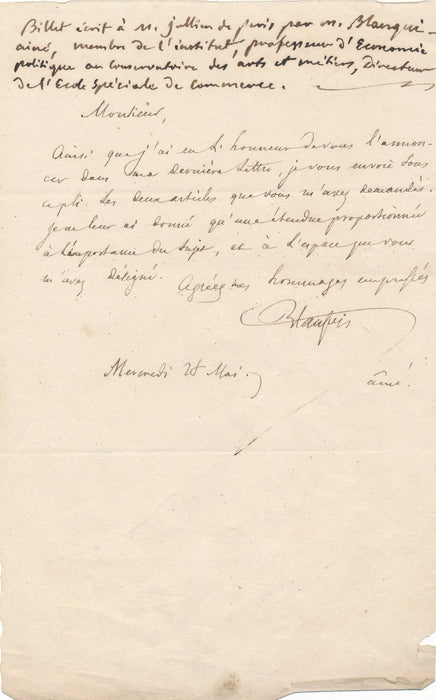 Billet écrit à M. Jullien de Paris par M. Blanqui
ainé, membre de l'institut, professeur d'Economie
politique au Conservatoire des arts et métiers, Directeur
de l'Ecole Spéciale de Commerce.
Monsieur,
Ainsi que j'ai eu l'honneur de vous l'annon-
cer dans ma dernière lettre, je vous envoie sous
ce pli les deux articles que vous m'avez demandés.
Je ne leur ai donné qu'une étendue proportionnée
à l'importance du sujet, et à l'espace que vous
m'avez désigné. Agréez mes hommages empressés
Blanqui
ainé.
Mercredi 28 Mai.